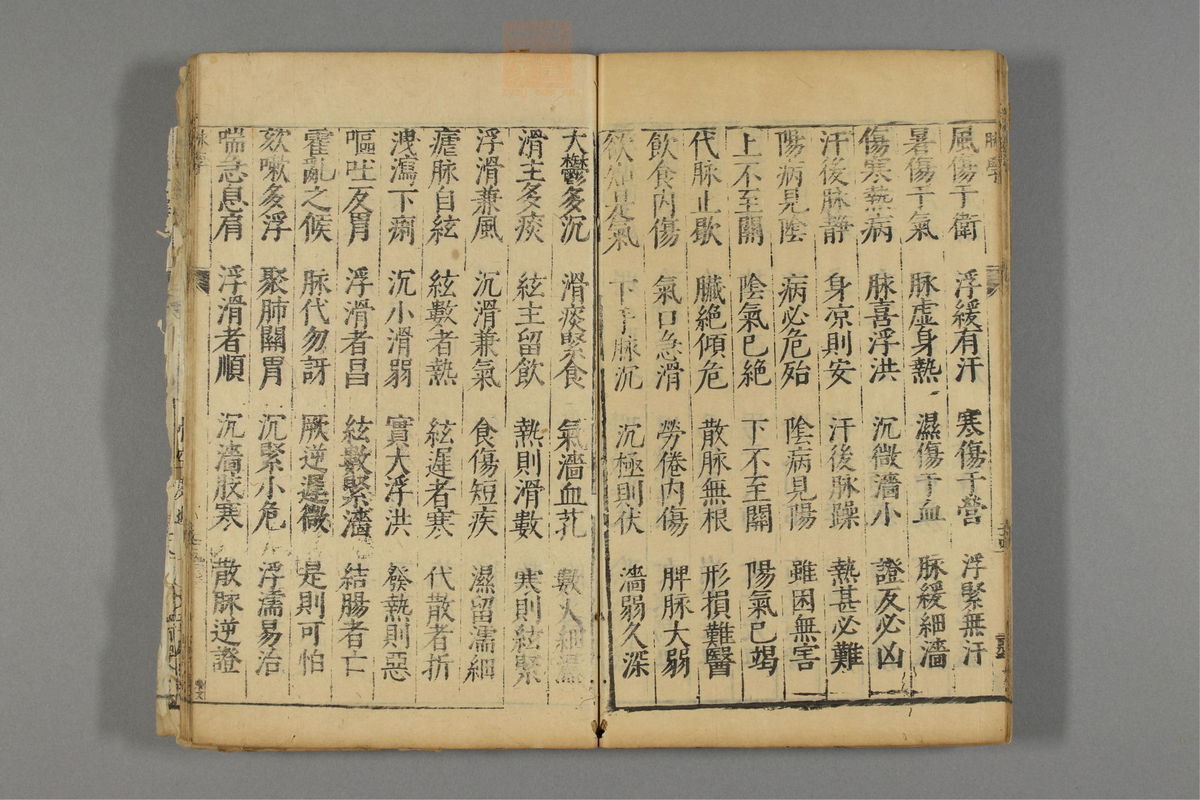 風傷于衛 浮緩有汗 寒傷于營 浮緊無汗
暑傷于氣 脉虚身熱 濕傷于血 脉緩細濇
傷寒熱病 脉喜浮洪 沉微濇小 證反必凶
汗後脉静 身凉則安 汗後脉躁 熱甚必難
陽病見陰 病必危殆 陰病見陽 雖困無害
上不至關 陰氣已絶 下不至關 陽氣已竭
代脉止歇 臟絶傾危 散脉無根 形損難醫
飲食内傷 氣口急滑 勞倦内傷 脾脉大弱
欲知是氣 下手脉沉 沉極則伏 濇弱久深
大鬱多沉 滑痰緊食 氣濇血芤 數火細濕
滑主多痰 絃主留飲 熱則滑數 寒則絃緊
浮滑兼風 沉滑兼氣 食傷短疾 濕留濡細
瘧脉自絃 絃數者熱 絃遲者寒 代散者折
洩瀉下痢 沉小滑弱 實大浮洪 發熱則惡
嘔吐反胃 浮滑者昌 絃數緊濇 結腸者亡
霍亂之候 脉代勿訝 厥逆遲微 是則可怕
欬嗽多浮 聚肺關胃 沉緊小危 浮濡易治
喘急息肩 浮滑者順 沉濇肢寒 散脉逆證